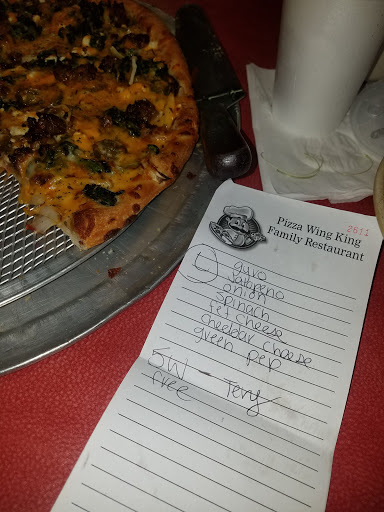 2611
Pizza Wing King
Family Restaurant
L gyro
Jalapeno
onion
spinach
fet cheese
chedbar cheese
green pep
5W - Tery
free